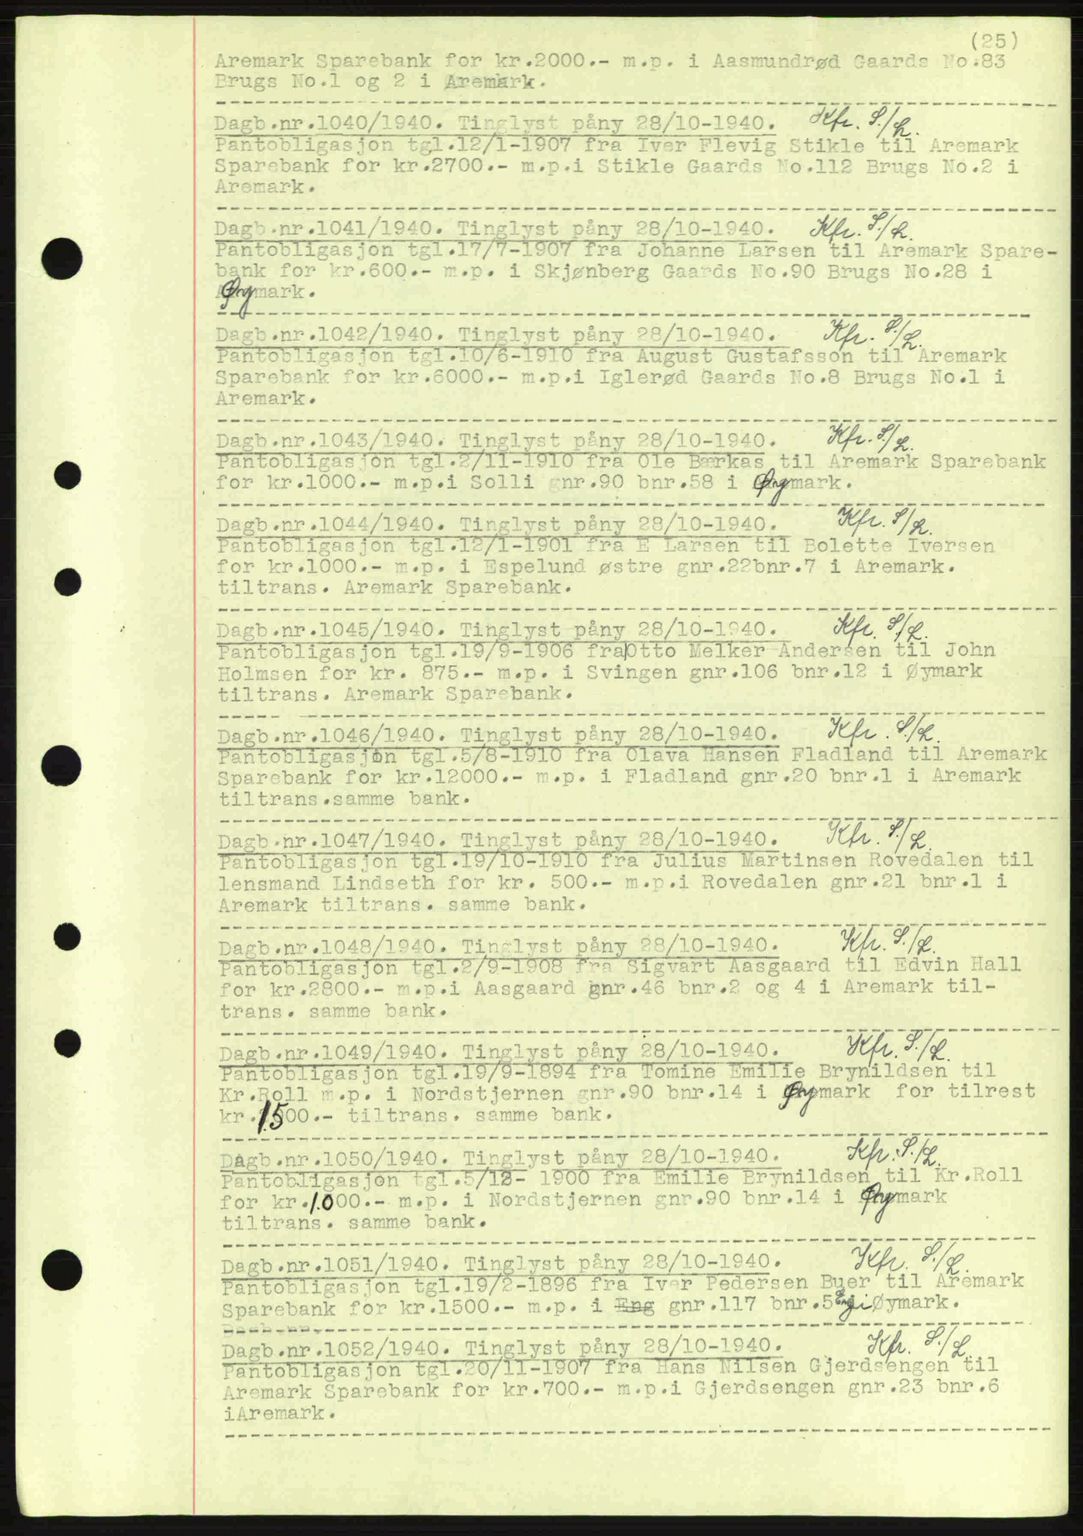 (25)
Aremark Sparebank for kr.2000.- m.p. i Aasmundrød Gaards No.83
Brugs No.1 og 2 i Aremark.
Dagb.nr.1040/1940. Tinglyst påny 28/10-1940. Kfr. S./L.
Pantobligasjon tgl.12/1-1907 fra Iver Flevig Stikle til Aremark
Sparebank for kr.2700.- m.p.i Stikle Gaards No.112 Brugs No.2 i
Aremark.
Dagb.nr.1041/1940. Tinglyst påny 28/10-1940. Kfr. S./L.
Pantobligasjon tgl.17/7-1907 fra Johanne Larsen til Aremark Spare-
bank for kr.600.- m.p. i Skjønberg Gaards No.90 Brugs No.28 i
Øymark.
Dagb.nr.1042/1940. Tinglyst påny 28/10-1940. Kfr. S./L.
Pantobligasjon tgl.10/6-1910 fra August Gustafsson til Aremark
Sparebank for kr.6000.- m.p.i Iglerød Gaards No.8 Brugs No.1 i
Aremark.
Dagb.nr.1043/1940. Tinglyst påny 28/10-1940. Kfr. S./L.
Pantobligasjon tgl.2/11-1910 fra Ole Bærkas til Aremark Sparebank
for kr.1000.- m.p.i Solli gnr.90 bnr.58 i Øymark.
Dagb.nr.1044/1940. Tinglyst påny 28/10-1940. Kfr. S./L.
Pantobligasjon tgl.12/1-1901 fra E Larsen til Bolette Iversen
for kr.1000.- m.p. i Espelund østre gnr.22bnr.7 i Aremark.
tiltrans. Aremark Sparebank.
Dagb.nr.1045/1940. Tinglyst påny 28/10-1940. Kfr. S./L.
Pantobligasjon tgl.19/9-1906 fra Otto Melker Andersen til John
Holmsen for kr. 875.- m.p. i Svingen gnr.106 bnr.12 i Øymark
tiltrans. Aremark Sparebank.
Dagb.nr.1046/1940. Tinglyst påny 28/10-1940. Kfr. S./L.
Pantobligasjon tgl.5/8-1910 fra Olava Hansen Fladland til Aremark
Sparebank for kr.12000.- m.p. i Fladland gnr.20 bnr.1 i Aremark
tiltrans.samme bank.
Dagb.nr.1047/1940. Tinglyst påny 28/10-1940. Kfr. S./L.
Pantobligasjon tgl.19/10-1910 fra Julius Martinsen Rovedalen til
lensmand Lindseth for kr. 500.- m.p.i Rovedalen gnr.21 bnr.1 i
Aremark tiltrans. samme bank.
Dagb.nr.1048/1940. Tinglyst påny 28/10-1940. Kfr. S./L.
Pantobligasjon tgl.2/9-1908 fra Sigvart Aasgaard til Edvin Hall
for kr.2800.- m.p.i Aasgaard gnr.46 bnr.2 og 4 i Aremark til-
trans. samme bank.
Dagb.nr.1049/1940. Tinglyst påny 28/10-1940. Kfr. S./L.
Pantobligasjon tgl.19/9-1894 fra Tomine Emilie Brynildsen til
Kr.Roll m.p. i Nordstjernen gnr.90 bnr.14 i Øymark for tilrest
kr.1500.- tiltrans. samme bank.
Dagb.nr.1050/1940. Tinglyst påny 28/10-1940. Kfr. S./L.
Pantobligasjon tgl.5/12- 1900 fra Emilie Brynildsen til Kr.Roll
for kr.1.000.- m.p. i Nordstjernen gnr.90 bnr.14 i Øymark
tiltrans. samme bank.
Dagb.nr.1051/1940. Tinglyst påny 28/10-1940. Kfr. S./L.
Pantobligasjon tgl.19/2-1896 fra Iver Pedersen Buer til Aremark
Sparebank for kr.1500.- m.p. i Eng gnr.117 bnr.5 i Øymark.
Dagb.nr.
Dagb.nr.1052/1940. Tinglyst påny 28/10-1940. Kfr. S./L.
Pantobligasjon tgl.20/11-1907 fra Hans Nilsen Gjerdsengen til
Aremark Sparebank for kr.700.- m.p.i Gjerdsengen gnr.23 bnr.6
iAremark.